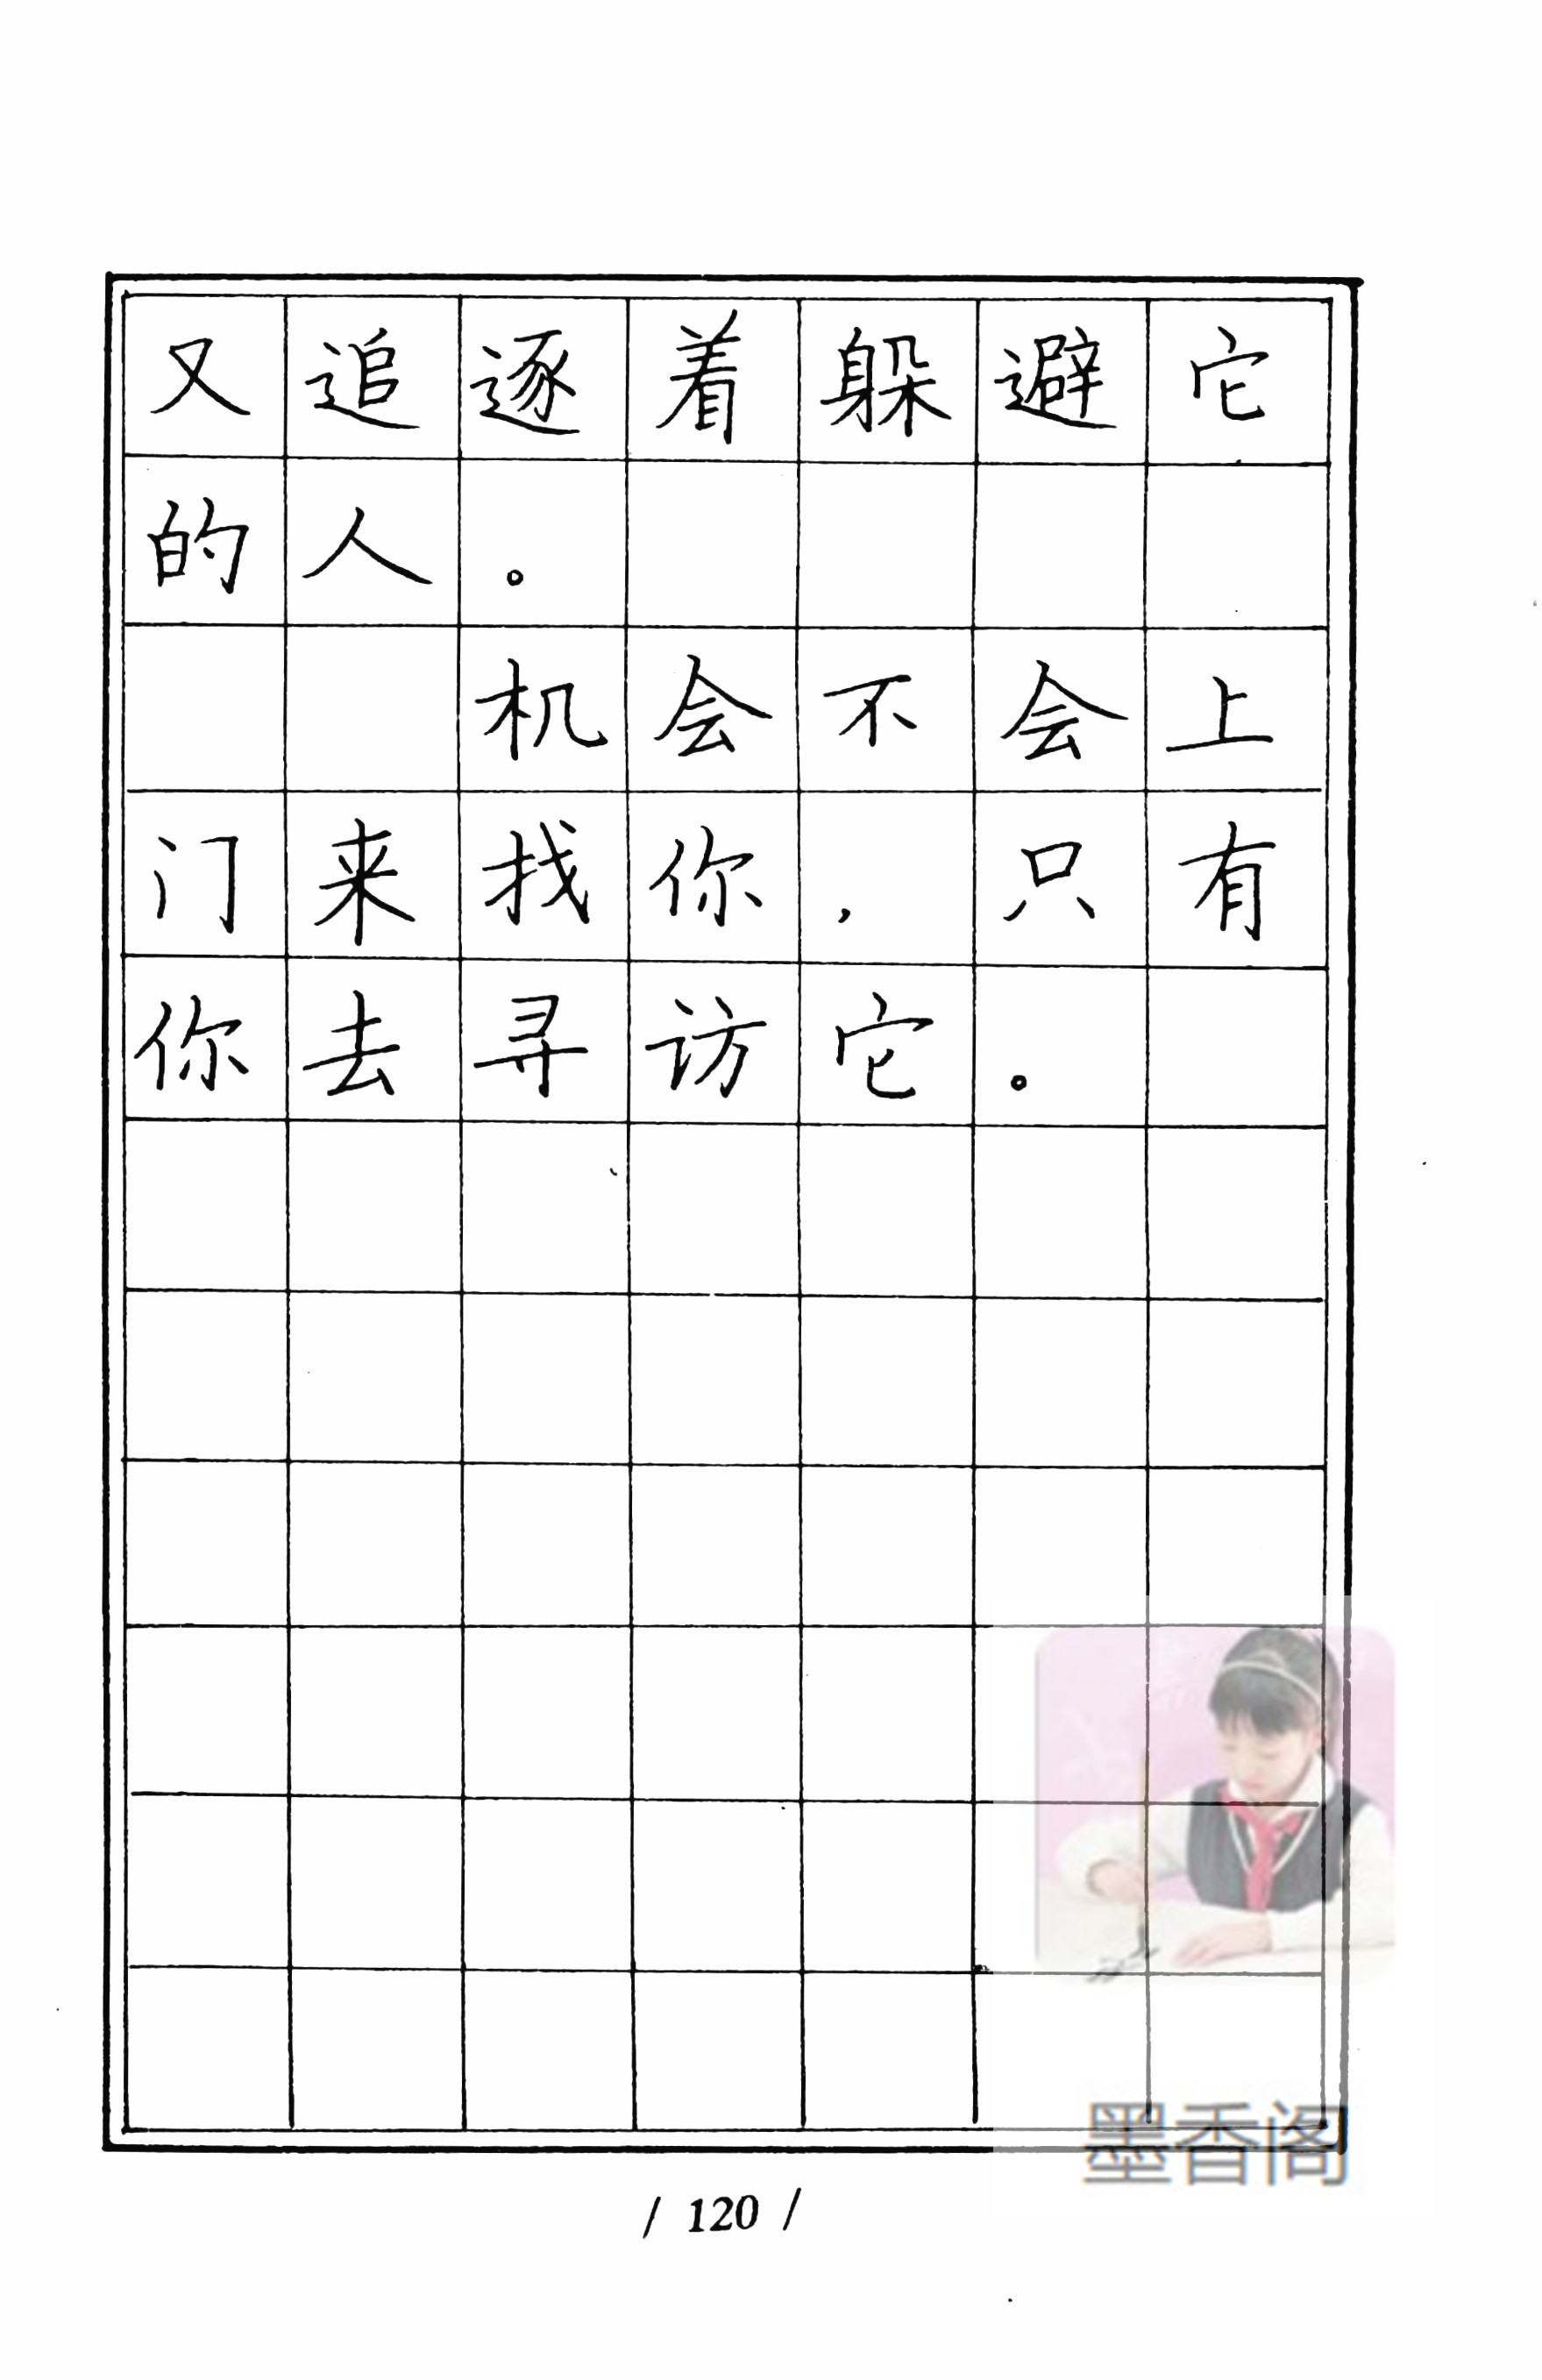 又追逐着躲避它
的人。
机会不会上
门来找你，只有
你去寻访它。
墨香阁
/ 120 /